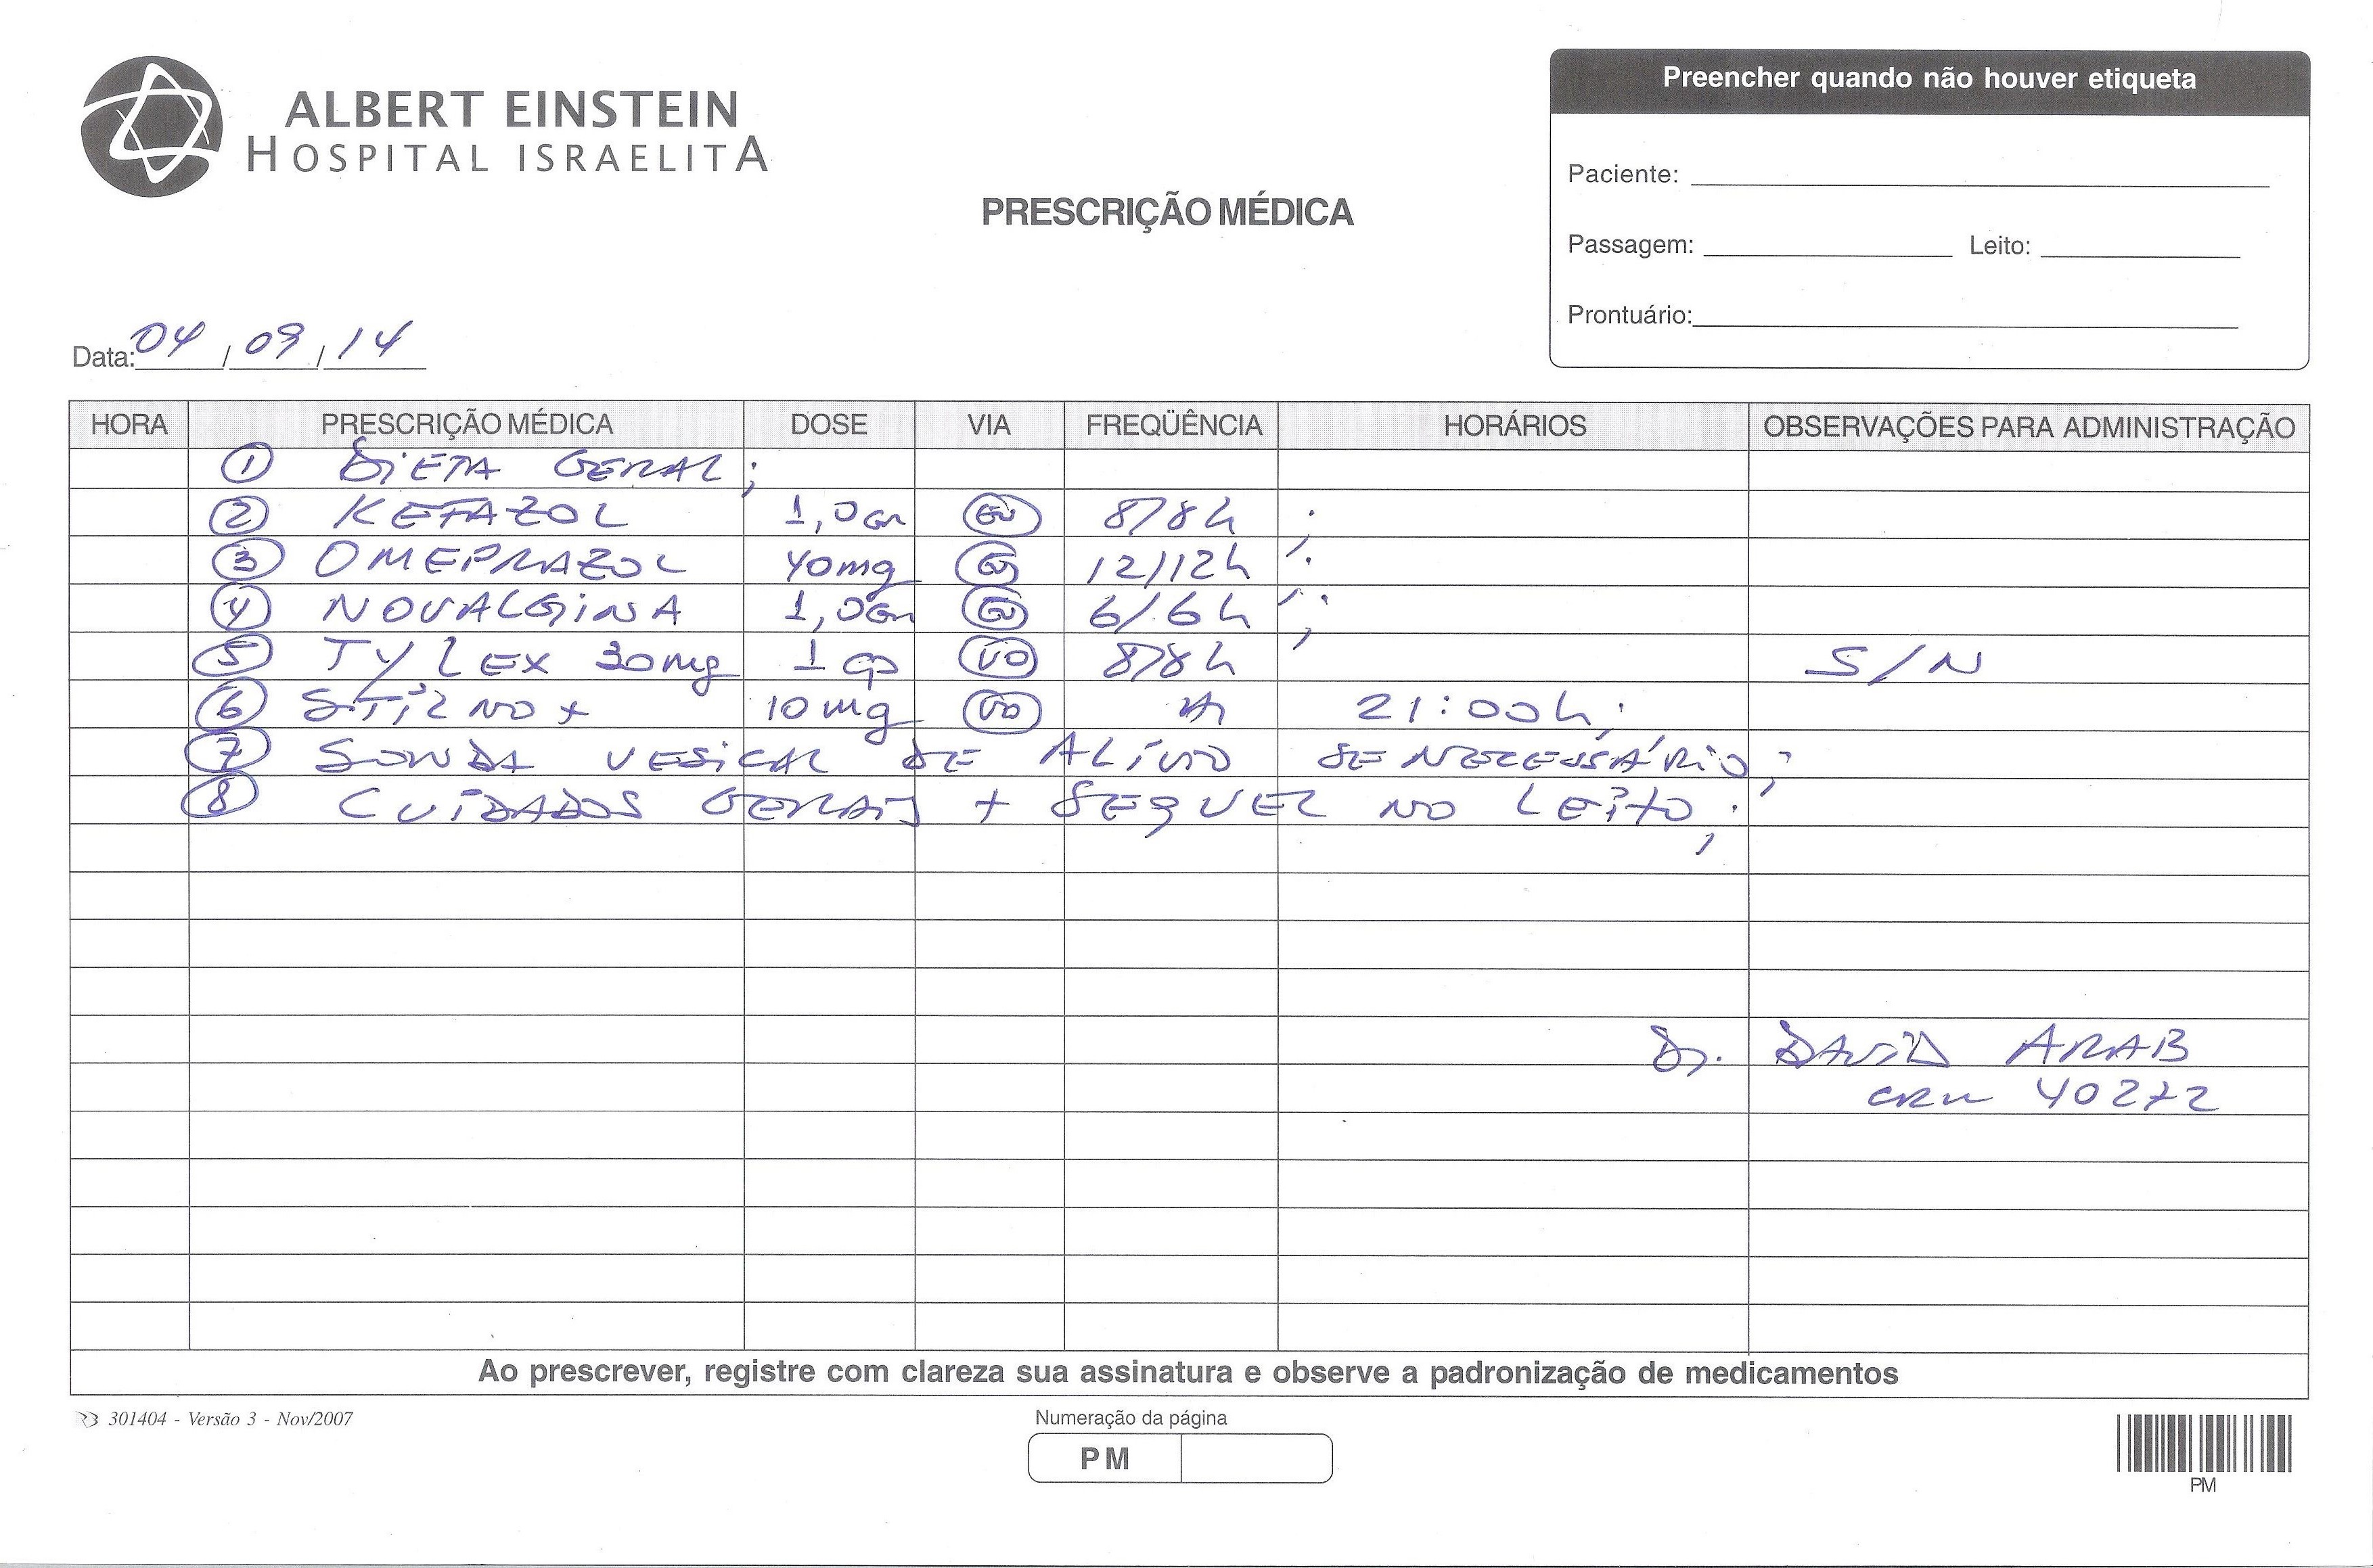 ALBERT EINSTEIN
HOSPITAL ISRAELITA
Preencher quando não houver etiqueta
Paciente:
PRESCRIÇÃO MÉDICA
Passagem: Leito:
Prontuário:
Data: 04 / 09 / 14
HORA PRESCRIÇÃO MÉDICA DOSE VIA FREQÜÊNCIA HORÁRIOS OBSERVAÇÕES PARA ADMINISTRAÇÃO
1 DIETA GERAL;
2 KEFAZOL 1,0gr EV 8/8h ;
3 OMEPRAZOL 40mg EV 12/12h ;
4 NOVALGINA 1,0Gr EV 6/6h ;
5 TYLEX 30mg 1 cp VO 8/8h S/N
6 STILNOX 10mg VO 21:00h;
7 SONDA VESICAL DE ALÍVIO SE NECESSÁRIO;
8 CUIDADOS GERAIS + SEGUEL NO LEITO;
Dr. DAVID ARAB
CRM 40272
Ao prescrever, registre com clareza sua assinatura e observe a padronização de medicamentos
301404 - Versão 3 - Nov/2007
Numeração da página
PM
PM